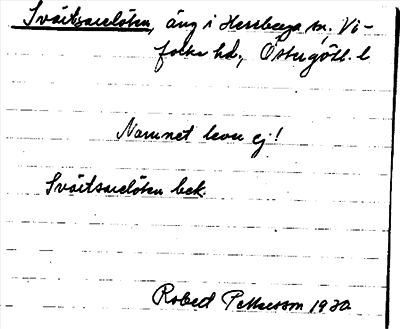 Sväitsarelöten, äng i Herrberga sn. Vi-
folka hd., Östergötl. l
Namnet lever ej!
Sväitsarelöten bek.
Robert Pettersson 1930